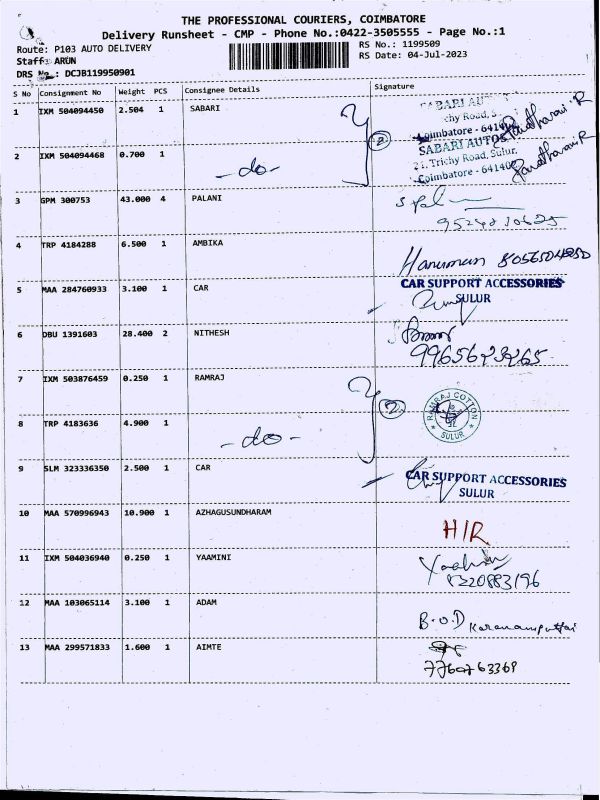 THE PROFESSIONAL COURIERS, COIMBATORE
Delivery Runsheet - CMP - Phone No.:0422-3505555 - Page No.:1
Route: P103 AUTO DELIVERY
RS No.: 1199509
Staff: ARUN
RS Date: 04-Jul-2023
DRS No.: DCJB119950901
S No Consignment No Weight PCS Consignee Details Signature
1 IXM 504094450 2.504 1 SABARI
SABARI AUT
chy Road, S
Coimbatore - 6414
2 IXM 504094468 0.700 1 -do- 2
SABARI AUTOS
21, Trichy Road, Sulur.
Coimbatore - 641402
3 GPM 300753 43.000 4 PALANI
4 TRP 4184288 6.500 1 AMBIKA Hanuman
5 MAA 284760933 3.100 1 CAR
CAR SUPPORT ACCESSORIES
SULUR
6 DBU 1391603 28.400 2 NITHESH
7 IXM 503876459 0.250 1 RAMRAJ 2
RAMRAJ COTTON
SULUR
8 TRP 4183636 4.900 1 -do-
9 SLM 323336350 2.500 1 CAR
CAR SUPPORT ACCESSORIES
SULUR
10 MAA 570996943 10.900 1 AZHAGUSUNDHARAM H/R
11 IXM 504036940 0.250 1 YAAMINI
8220883196
12 MAA 103065114 3.100 1 ADAM B.O.D
13 MAA 299571833 1.600 1 AIMTE